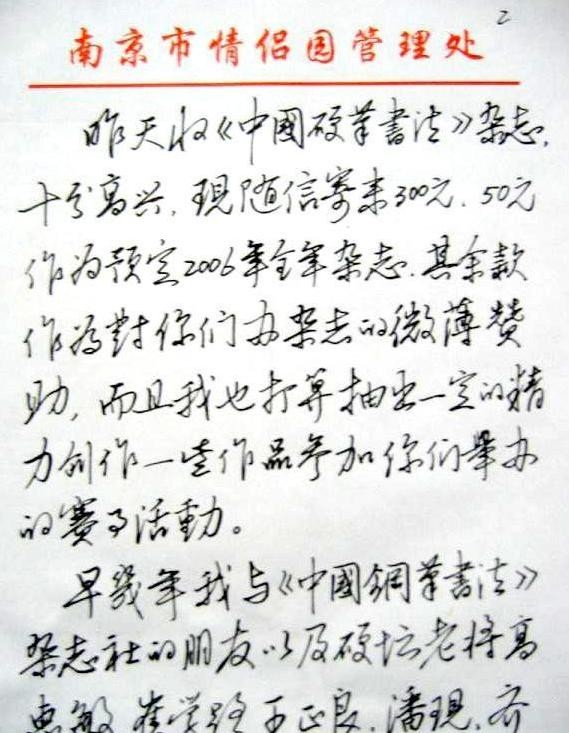 2
南京市情侣园管理处
昨天收《中國硬筆書法》杂志,
十分高兴,現随信寄来300元,50元
作为预定2006年全年杂志,其余款
作為對你们办杂志的微薄赞
助,而且我也打算抽出一定的精
力创作一些作品参加你们舉办
的賽事活動。
早幾年我与《中國鋼筆書法》
杂志社的朋友以及硬坛老将高
惠敏 崔学路 王正良,潘現,齐